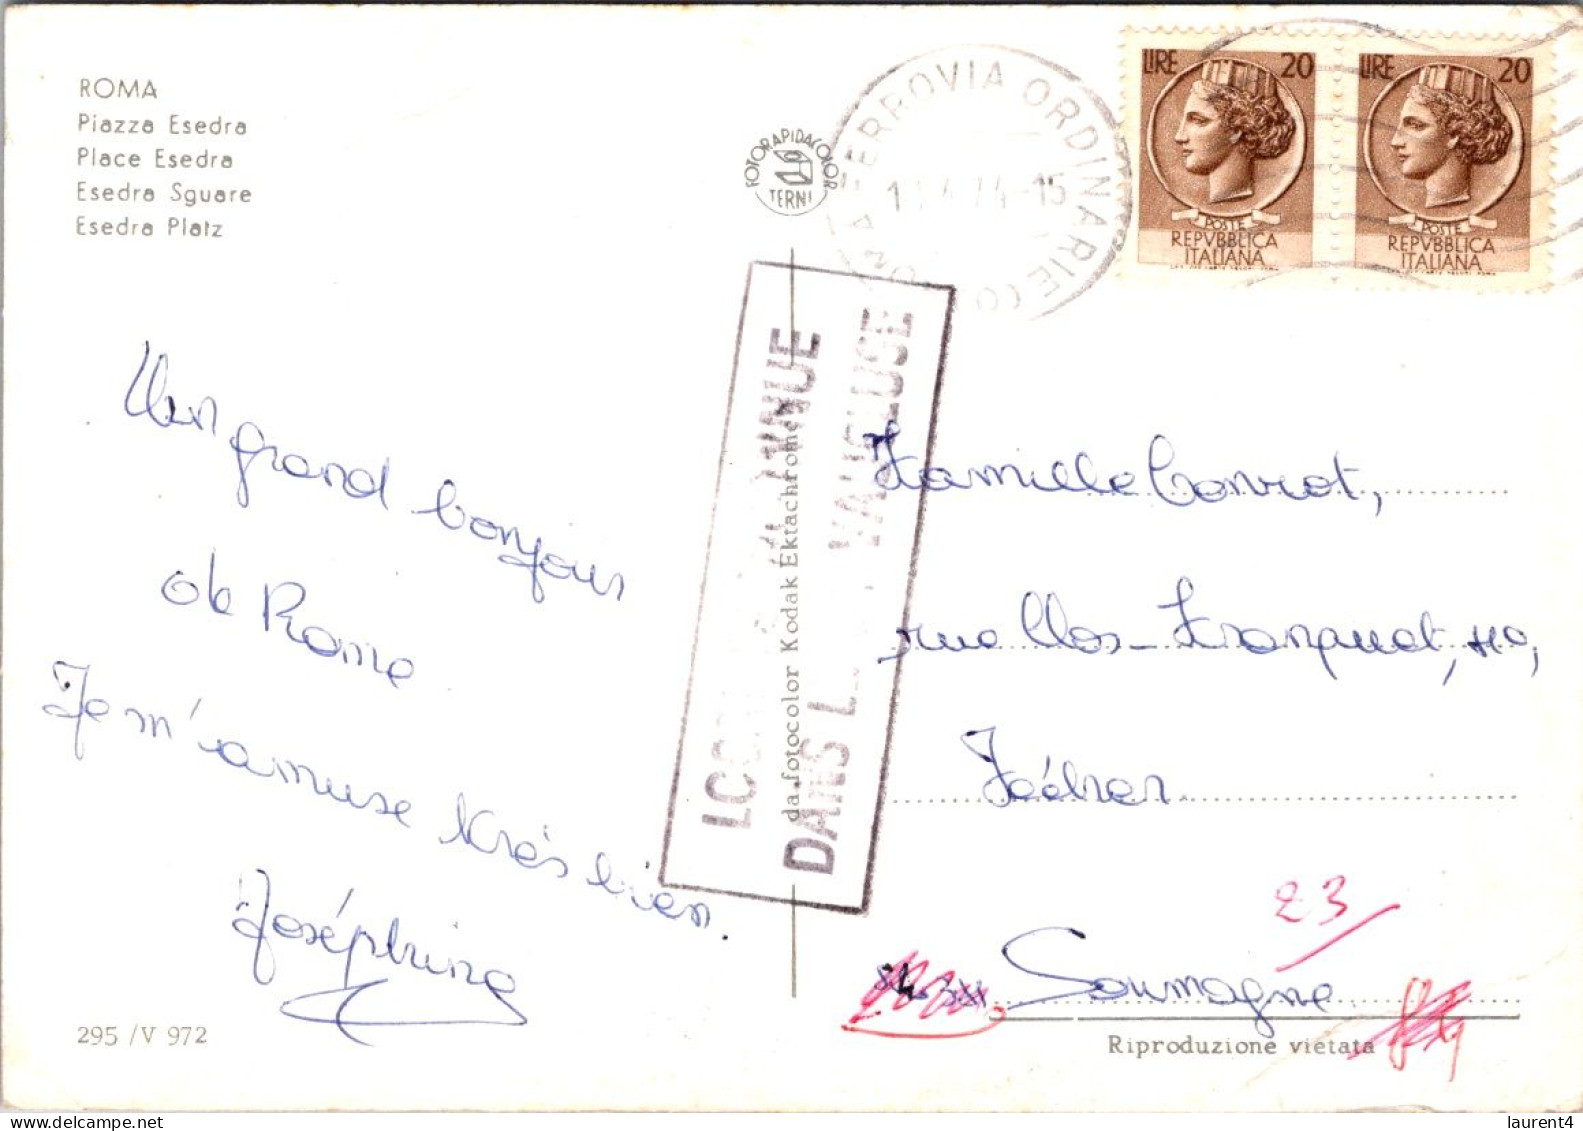 ROMA
Piazza Esedra
Place Esedra
Esedra Sguare
Esedra Platz
FOTORAPIDACOLOR
TERNI
FERROVIA ORDINARIE
LIRE 20
POSTE
REPVBBLICA
ITALIANA
LIRE 20
POSTE
REPVBBLICA
ITALIANA
DANS
VAUCLUSE
da fotocolor Kodak Ektachrome
Un grand bonjour
de Rome
Je m'amuse très bien.
Joséphine
Famille Conrot,
rue Clos-Franquet,
Fécher
23
Soumagne
295 /V 972
Riproduzione vietata
laurent4